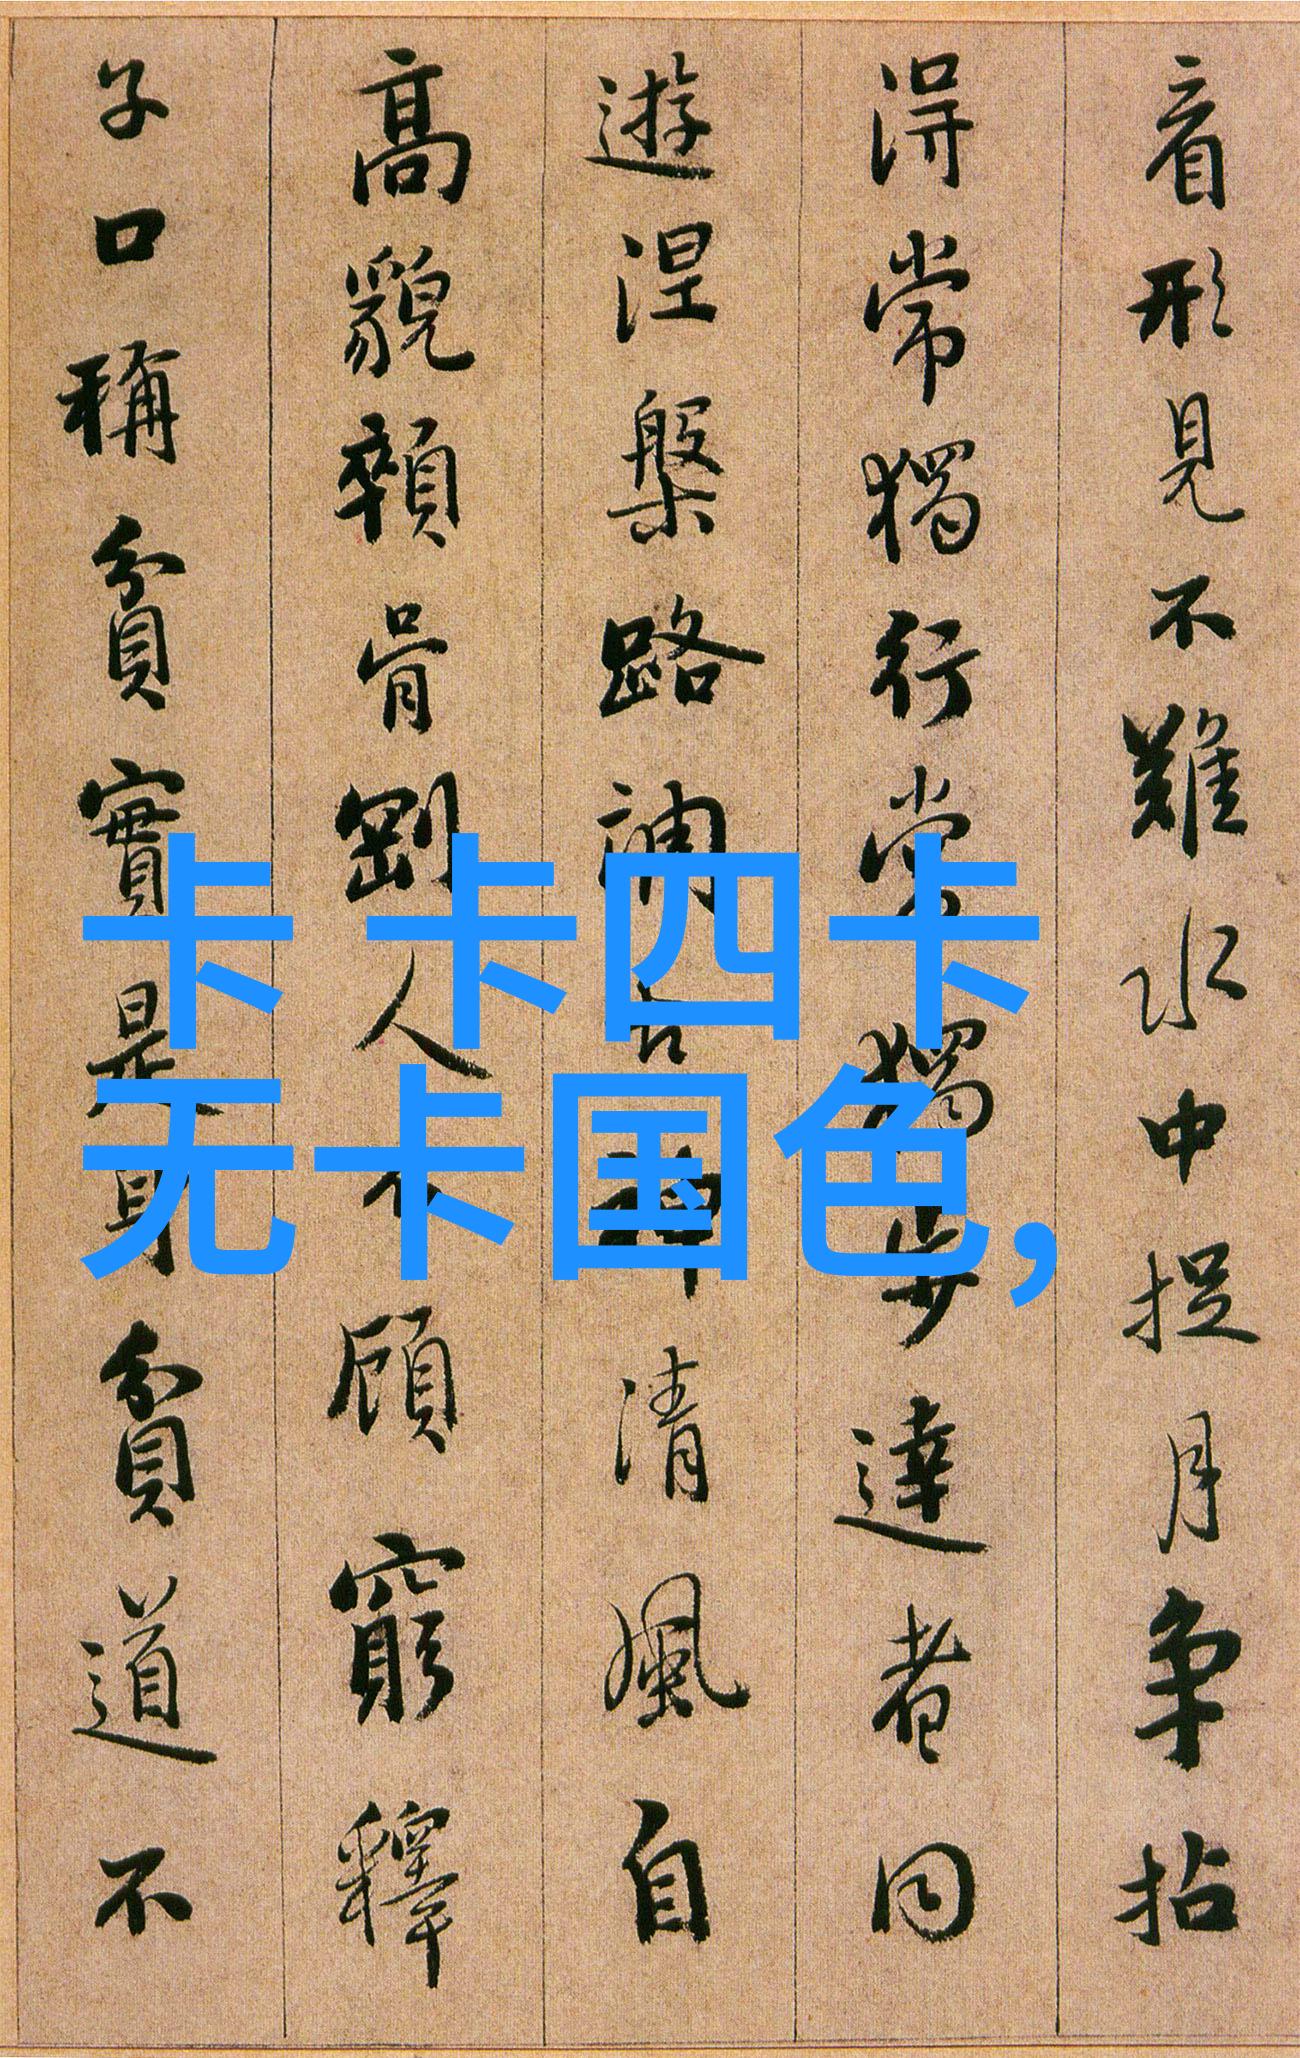 音形見不難水中捉月爭拈
得常獨行常獨步達者同
遊涅槃路調古神清風自
高貌顇骨剛人不顧窮釋
子口稱貧實是身貧道不
卡 卡四卡
无卡国色,